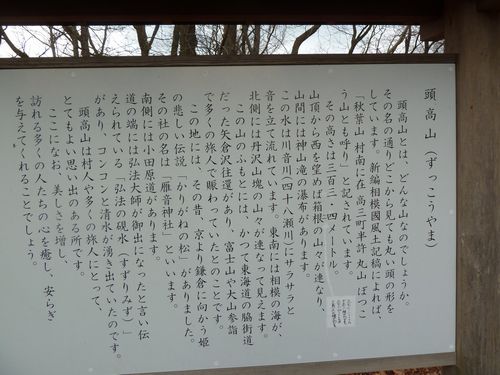 頭高山（ずっこうやま）
頭高山とは、どんな山なのでしょうか。
その名の通りどこから見ても丸い頭の形を
しています。新編相模國風土記稿によれば、
「秋葉山 村南に在 高三町半許 丸山 ぼつこ
う山とも呼り」と記されています。
その高さは三百三・四メートル
山頂から西を望めば箱根の山々が連なり、
山間には神山滝の瀑布があります。
この水は川音川（四十八瀬川）にサラサラと
音を立て流れています。東南には相模の海が、
北側には丹沢山塊の山々が連なって見えます。
この山のふもとには、かつて東海道の脇街道
だった矢倉沢往還があり、富士山や大山参詣
で多くの旅人で賑わっていたとのことです。
この地には、その昔、京より鎌倉に向かう姫
の悲しい伝説「かりがねの松」がありました。
その社の名は「雁音神社」といいます。
南側には小田原道があります。
道の端には弘法大師が御出になったと言い伝
えられている「弘法の硯水（すずりみず）」
があり、コンコンと清水が湧き出ていたのです。
頭高山は村人や多くの旅人にとって、
とてもよい思い出のある所です。
ここになお、美しさを増し、
訪れる多くの人たちの心を癒し、安らぎ
を与えてくれることでしょう。